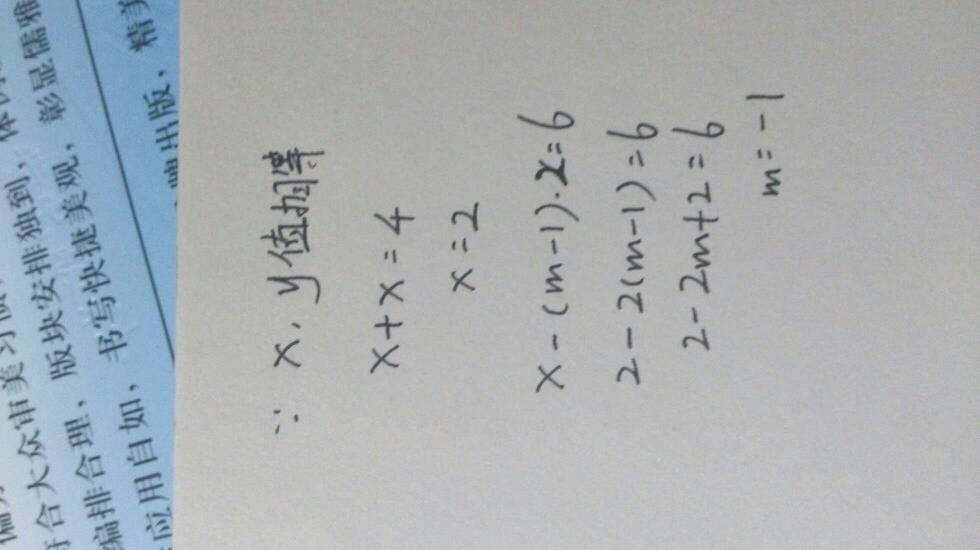 ∵ x, y值相等
x+x=4
x=2
x-(m-1)·x=6
2-2(m-1)=6
2-2m+2=6
m=-1
符合大众审美习惯
版块安排独到,
编排合理,
彰显儒雅
应用自如,
书写快捷美观,
牌出版,
精美